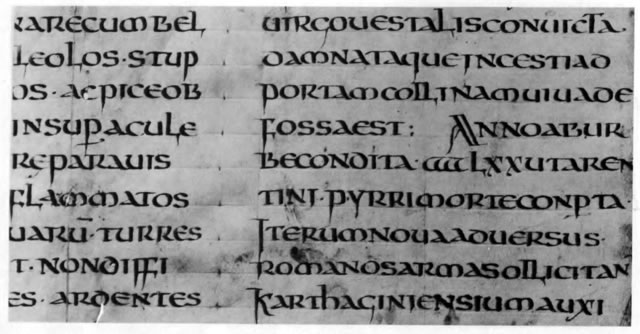 RARECUMBEL
LEOLOS·STUP
OS·ACPICEOB
INSUPACULE
REPARAUIS
FLAMMATOS
UARŪ·TURRES
T·NONDIFFI
ES·ARDENTES
UIRGOUESTALISCONUICTA·
DAMNATAQUEINCESTIAD
PORTAMCOLLINAMUIUADE
FOSSAEST: ANNOABUR
BECONDITA·CCCCLXXUTAREN
TINI·PYRRIMORTECONPTA·
ITERUMNOUAADUERSUS·
ROMANOSARMASOLLICITAN
KARTHAGINIENSIUMAUXI